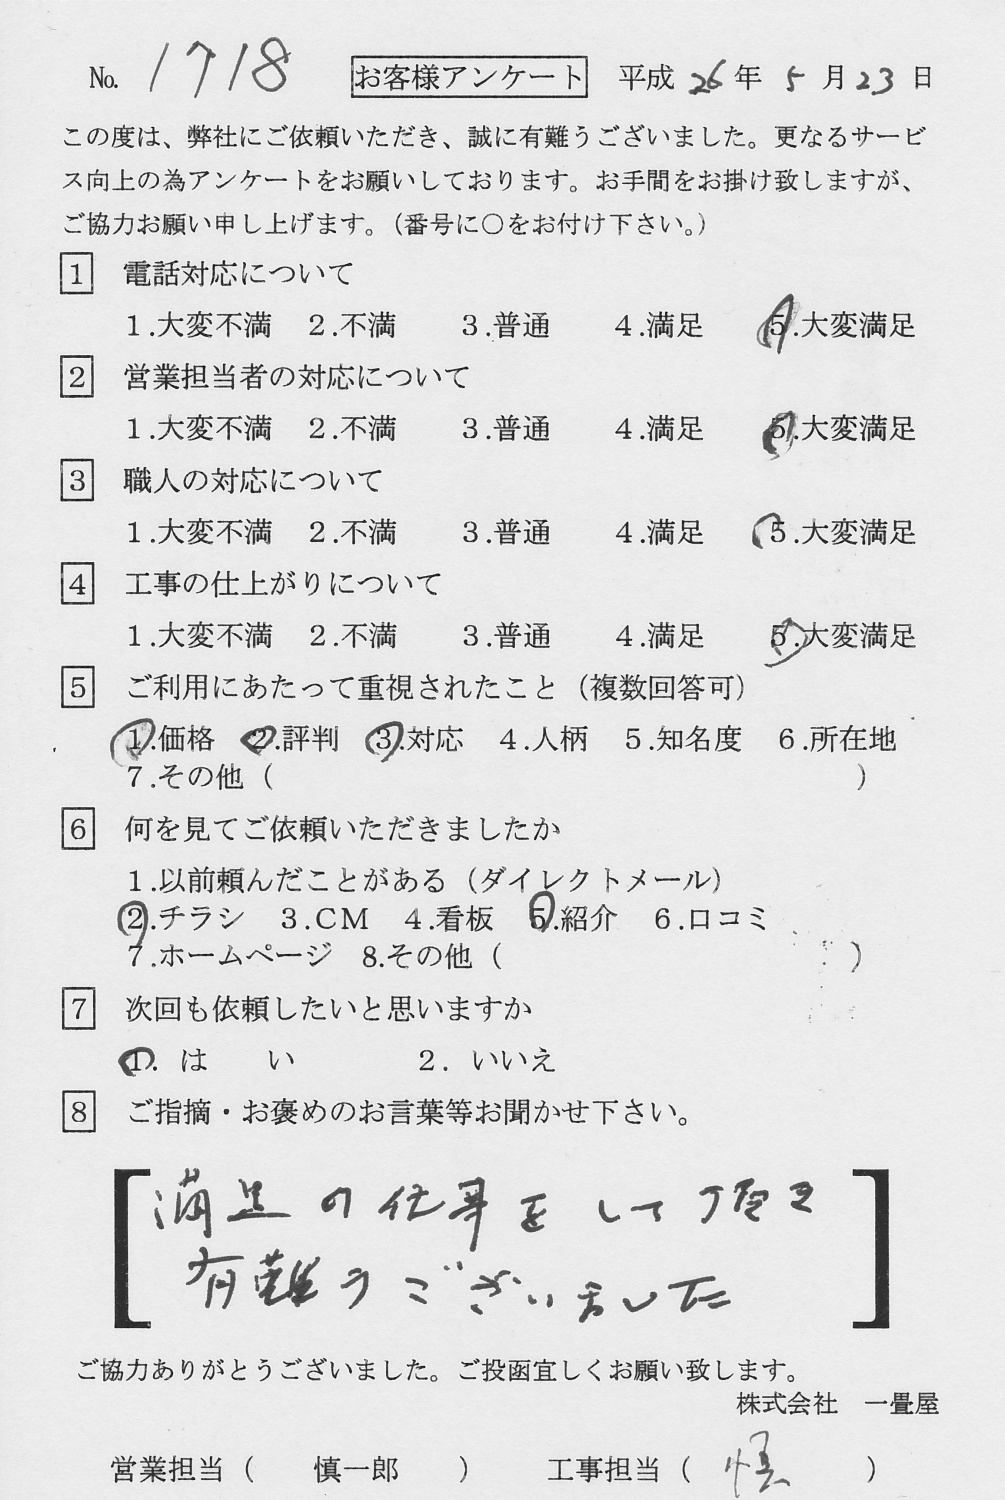 No. 1718 お客様アンケート 平成 26 年 5 月 23 日
この度は、弊社にご依頼いただき、誠に有難うございました。更なるサービ
ス向上の為アンケートをお願いしております。お手間をお掛け致しますが、
ご協力お願い申し上げます。（番号に○をお付け下さい。）
1 電話対応について
1.大変不満 2.不満 3.普通 4.満足 5.大変満足
2 営業担当者の対応について
1.大変不満 2.不満 3.普通 4.満足 5.大変満足
3 職人の対応について
1.大変不満 2.不満 3.普通 4.満足 5.大変満足
4 工事の仕上がりについて
1.大変不満 2.不満 3.普通 4.満足 5.大変満足
5 ご利用にあたって重視されたこと（複数回答可）
1.価格 2.評判 3.対応 4.人柄 5.知名度 6.所在地
7.その他（ ）
6 何を見てご依頼いただきましたか
1.以前頼んだことがある（ダイレクトメール）
2.チラシ 3.CM 4.看板 5.紹介 6.口コミ
7.ホームページ 8.その他（ ）
7 次回も依頼したいと思いますか
1. はい 2. いいえ
8 ご指摘・お褒めのお言葉等お聞かせ下さい。
満足の仕事をして頂き
有難うございました
ご協力ありがとうございました。ご投函宜しくお願い致します。
株式会社 一畳屋
営業担当（ 慎一郎 ） 工事担当（ 慎 ）